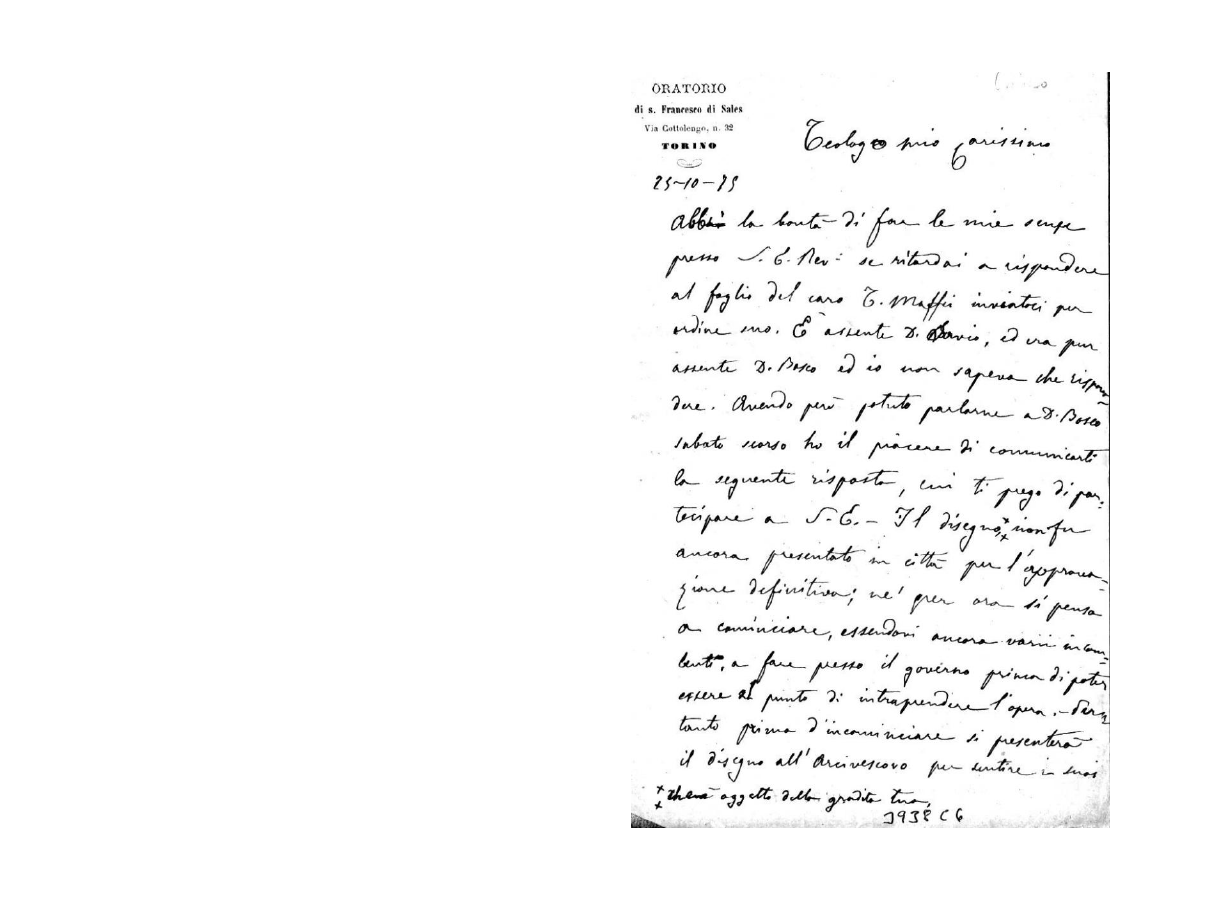 ORATORIO
di s. Francesco di Sales
Via Cottolengo, n. 32
TORINO
25-10-75
Teologo mio carissimo
Abbi la bontà di fare le mie scuse
presso S. E. Rev. se ritardai a rispondere
al foglio del caro T. Maffei inviatoci per
ordine suo. È assente D. Savio, ed era pur
assente D. Bosco ed io non sapeva che rispon-
dere. Avendo però potuto parlarne a D. Bosco
sabato scorso ho il piacere di comunicarti
la seguente risposta, cui ti prego di par-
tecipare a S. E. - Il disegno, non fu
ancora presentato in città per l'approva-
zione definitiva; nè per ora si pensa
a cominciare, essendovi ancora varii incom-
benti, a fare presso il governo prima di poter
essere al punto di intraprendere l'opera. -
tanto prima d'incominciare si presenterà
il disegno all'Arcivescovo per sentire i suoi
oggetto della gradita tua,
3938 C6